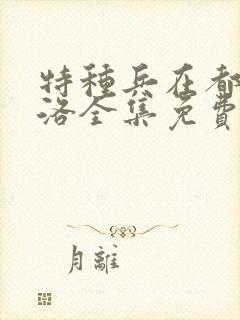 特種兵在都
洛全集免費
月離